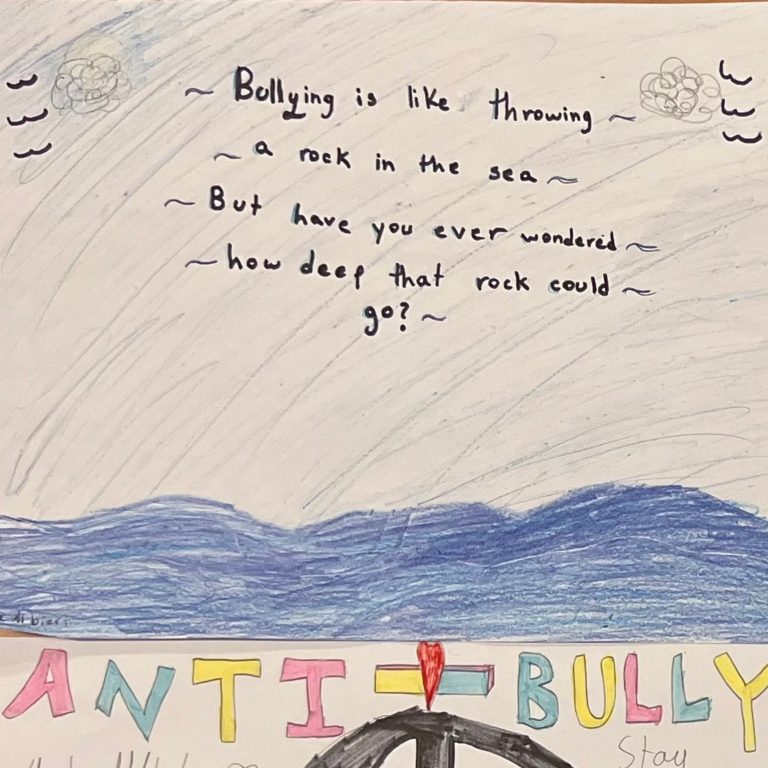 ~ Bullying is like throwing ~
~ a rock in the sea ~
~ But have you ever wondered ~
~ how deep that rock could ~
go? ~
ANTI-BULLY
Stay